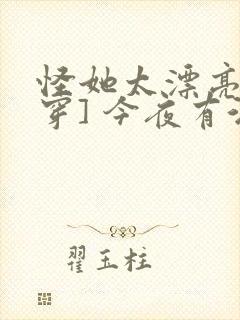 怪她太漂亮
穿]今夜有
翟玉柱